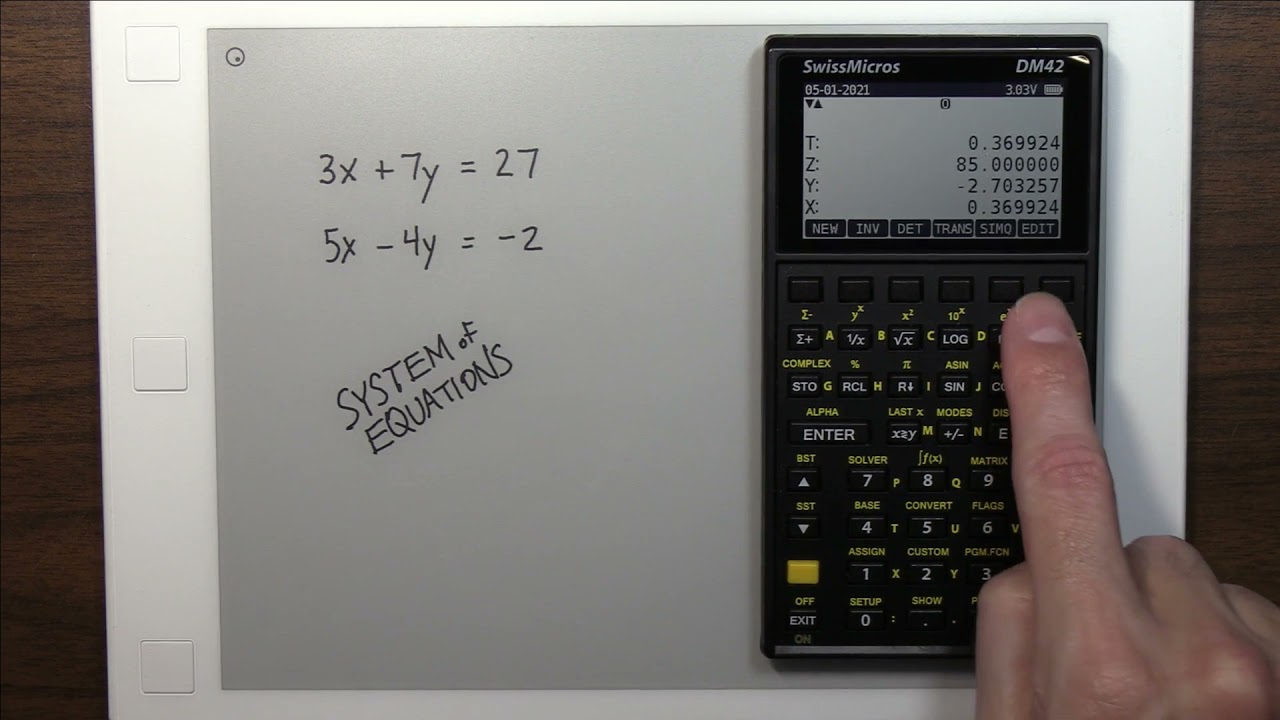 3x + 7y = 27
5x - 4y = -2
SYSTEM of
EQUATIONS
SwissMicros DM42
05-01-2021 3.03V
▼▲ 0
T: 0.369924
Z: 85.000000
Y: -2.703257
X: 0.369924
NEW INV DET TRANS SIMQ EDIT
Σ- yˣ x² 10ˣ
Σ+ A 1/x B √x C LOG D
COMPLEX % π ASIN
STO G RCL H R↓ I SIN J
ALPHA LAST x MODES
ENTER x≷y M +/- N E
BST SOLVER ∫f(x) MATRIX
▲ 7 P 8 Q 9
SST BASE CONVERT FLAGS
▼ 4 T 5 U 6 V
ASSIGN CUSTOM PGM.FCN
1 X 2 Y 3
OFF SETUP SHOW
EXIT 0 : . .
ON